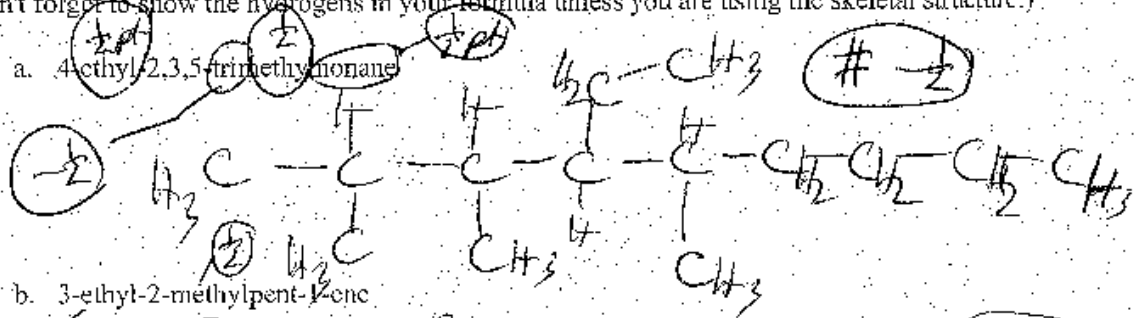 n't forget to show the hydrogens in your formula unless you are using the skeletal structure.)
½ pt ½ ½ pt
a. 4-ethyl-2,3,5-trimethylnonane
H₂C — CH₃ # -½
H H H
-½ H₃C — C — C — C — C — CH₂ — CH₂ — CH₂ — CH₃
½ H₃C CH₃ H CH₃
b. 3-ethyl-2-methylpent-1-ene